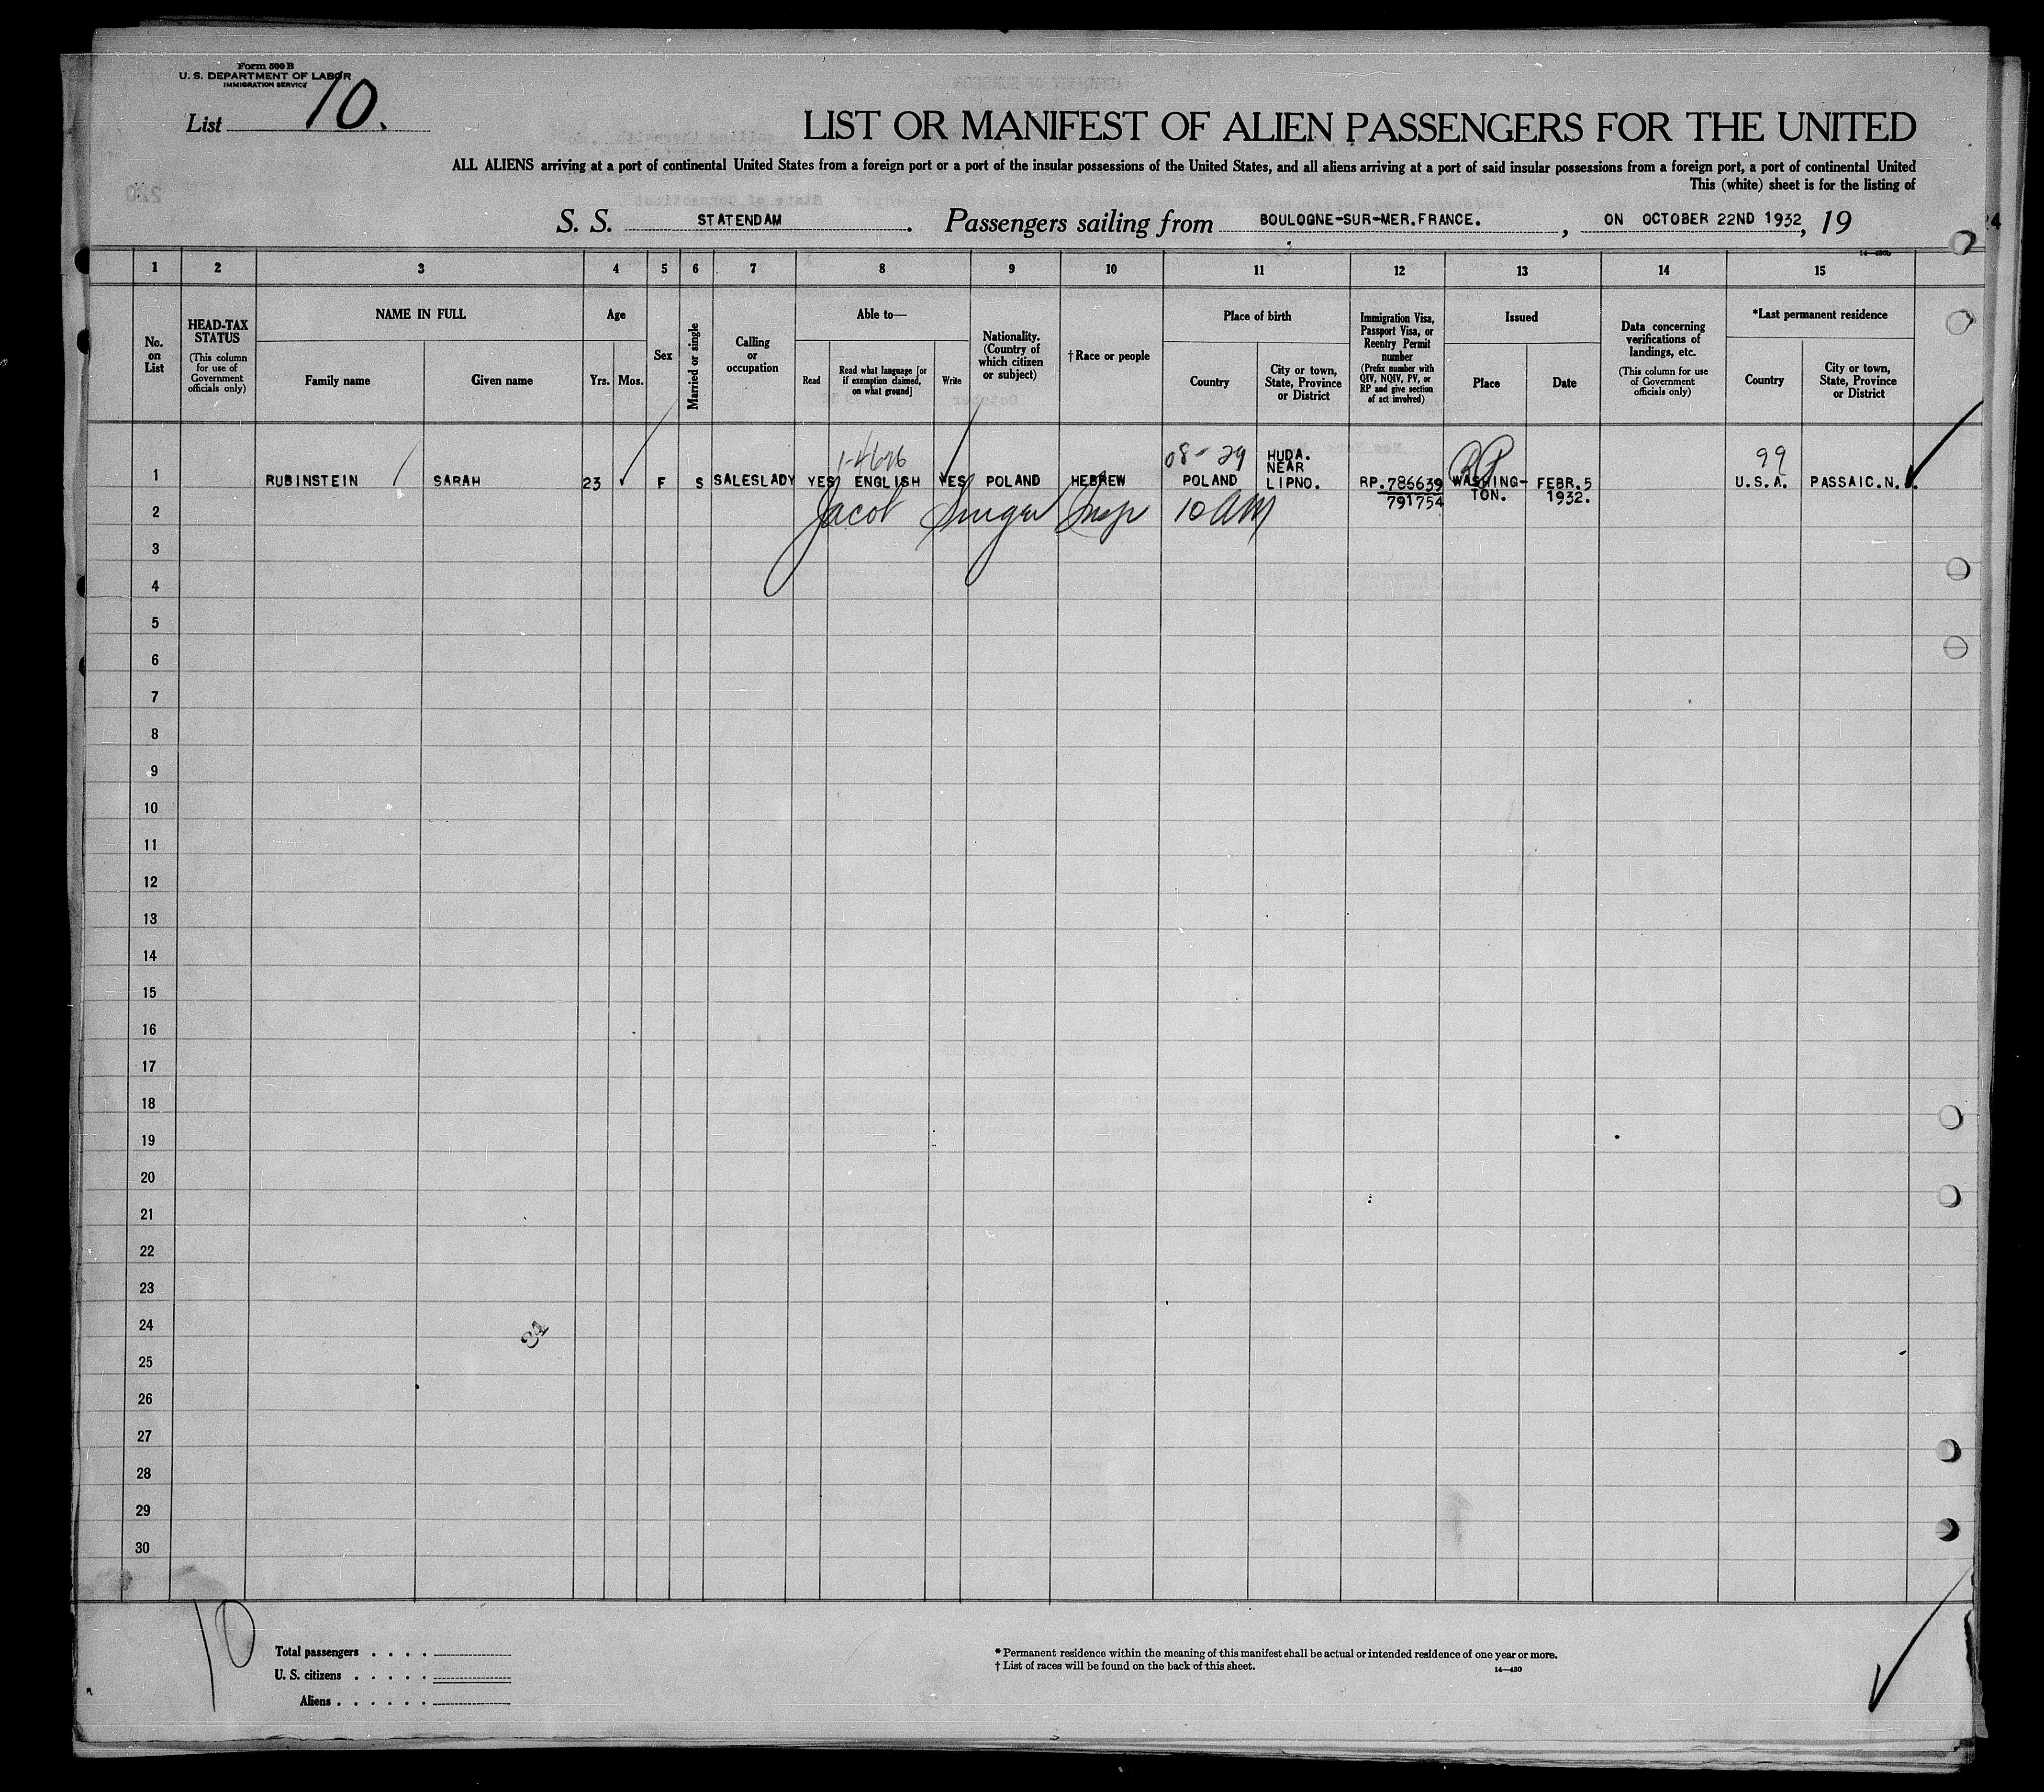 Form 500 B
U. S. DEPARTMENT OF LABOR
IMMIGRATION SERVICE
List 10.
LIST OR MANIFEST OF ALIEN PASSENGERS FOR THE UNITED
ALL ALIENS arriving at a port of continental United States from a foreign port or a port of the insular possessions of the United States, and all aliens arriving at a port of said insular possessions from a foreign port, a port of continental United
This (white) sheet is for the listing of
S. S. STATENDAM . Passengers sailing from BOULOGNE-SUR-MER.FRANCE. , ON OCTOBER 22ND 1932, 19
1 2 3 4 5 6 7 8 9 10 11 12 13 14 15
No. on List
HEAD-TAX STATUS
(This column for use of Government officials only)
NAME IN FULL
Family name
Given name
Age
Yrs.
Mos.
Sex
Married or single
Calling or occupation
Able to—
Read
Read what language [or if exemption claimed, on what ground]
Write
Nationality. (Country of which citizen or subject)
† Race or people
Place of birth
Country
City or town, State, Province or District
Immigration Visa, Passport Visa, or Reentry Permit number
(Prefix number with QIV, NQIV, PV, or RP and give section of act involved)
Issued
Place
Date
Data concerning verifications of landings, etc.
(This column for use of Government officials only)
*Last permanent residence
Country
City or town, State, Province or District
08-29
RP
99
1 RUBINSTEIN SARAH 23 F S SALESLADY YES ENGLISH YES POLAND HEBREW POLAND HUDA. NEAR LIPNO. RP.786639 WASHINGTON. FEBR.5 1932. U.S.A. PASSAIC.N.
791754
2 Jacob Singer Insp 10 AM
3
4
5
6
7
8
9
10
11
12
13
14
15
16
17
18
19
20
21
22
23
24
25
26
27
28
29
30
10
Total passengers . . . .
U. S. citizens . . . . .
Aliens . . . . . .
* Permanent residence within the meaning of this manifest shall be actual or intended residence of one year or more.
† List of races will be found on the back of this sheet.
14—430